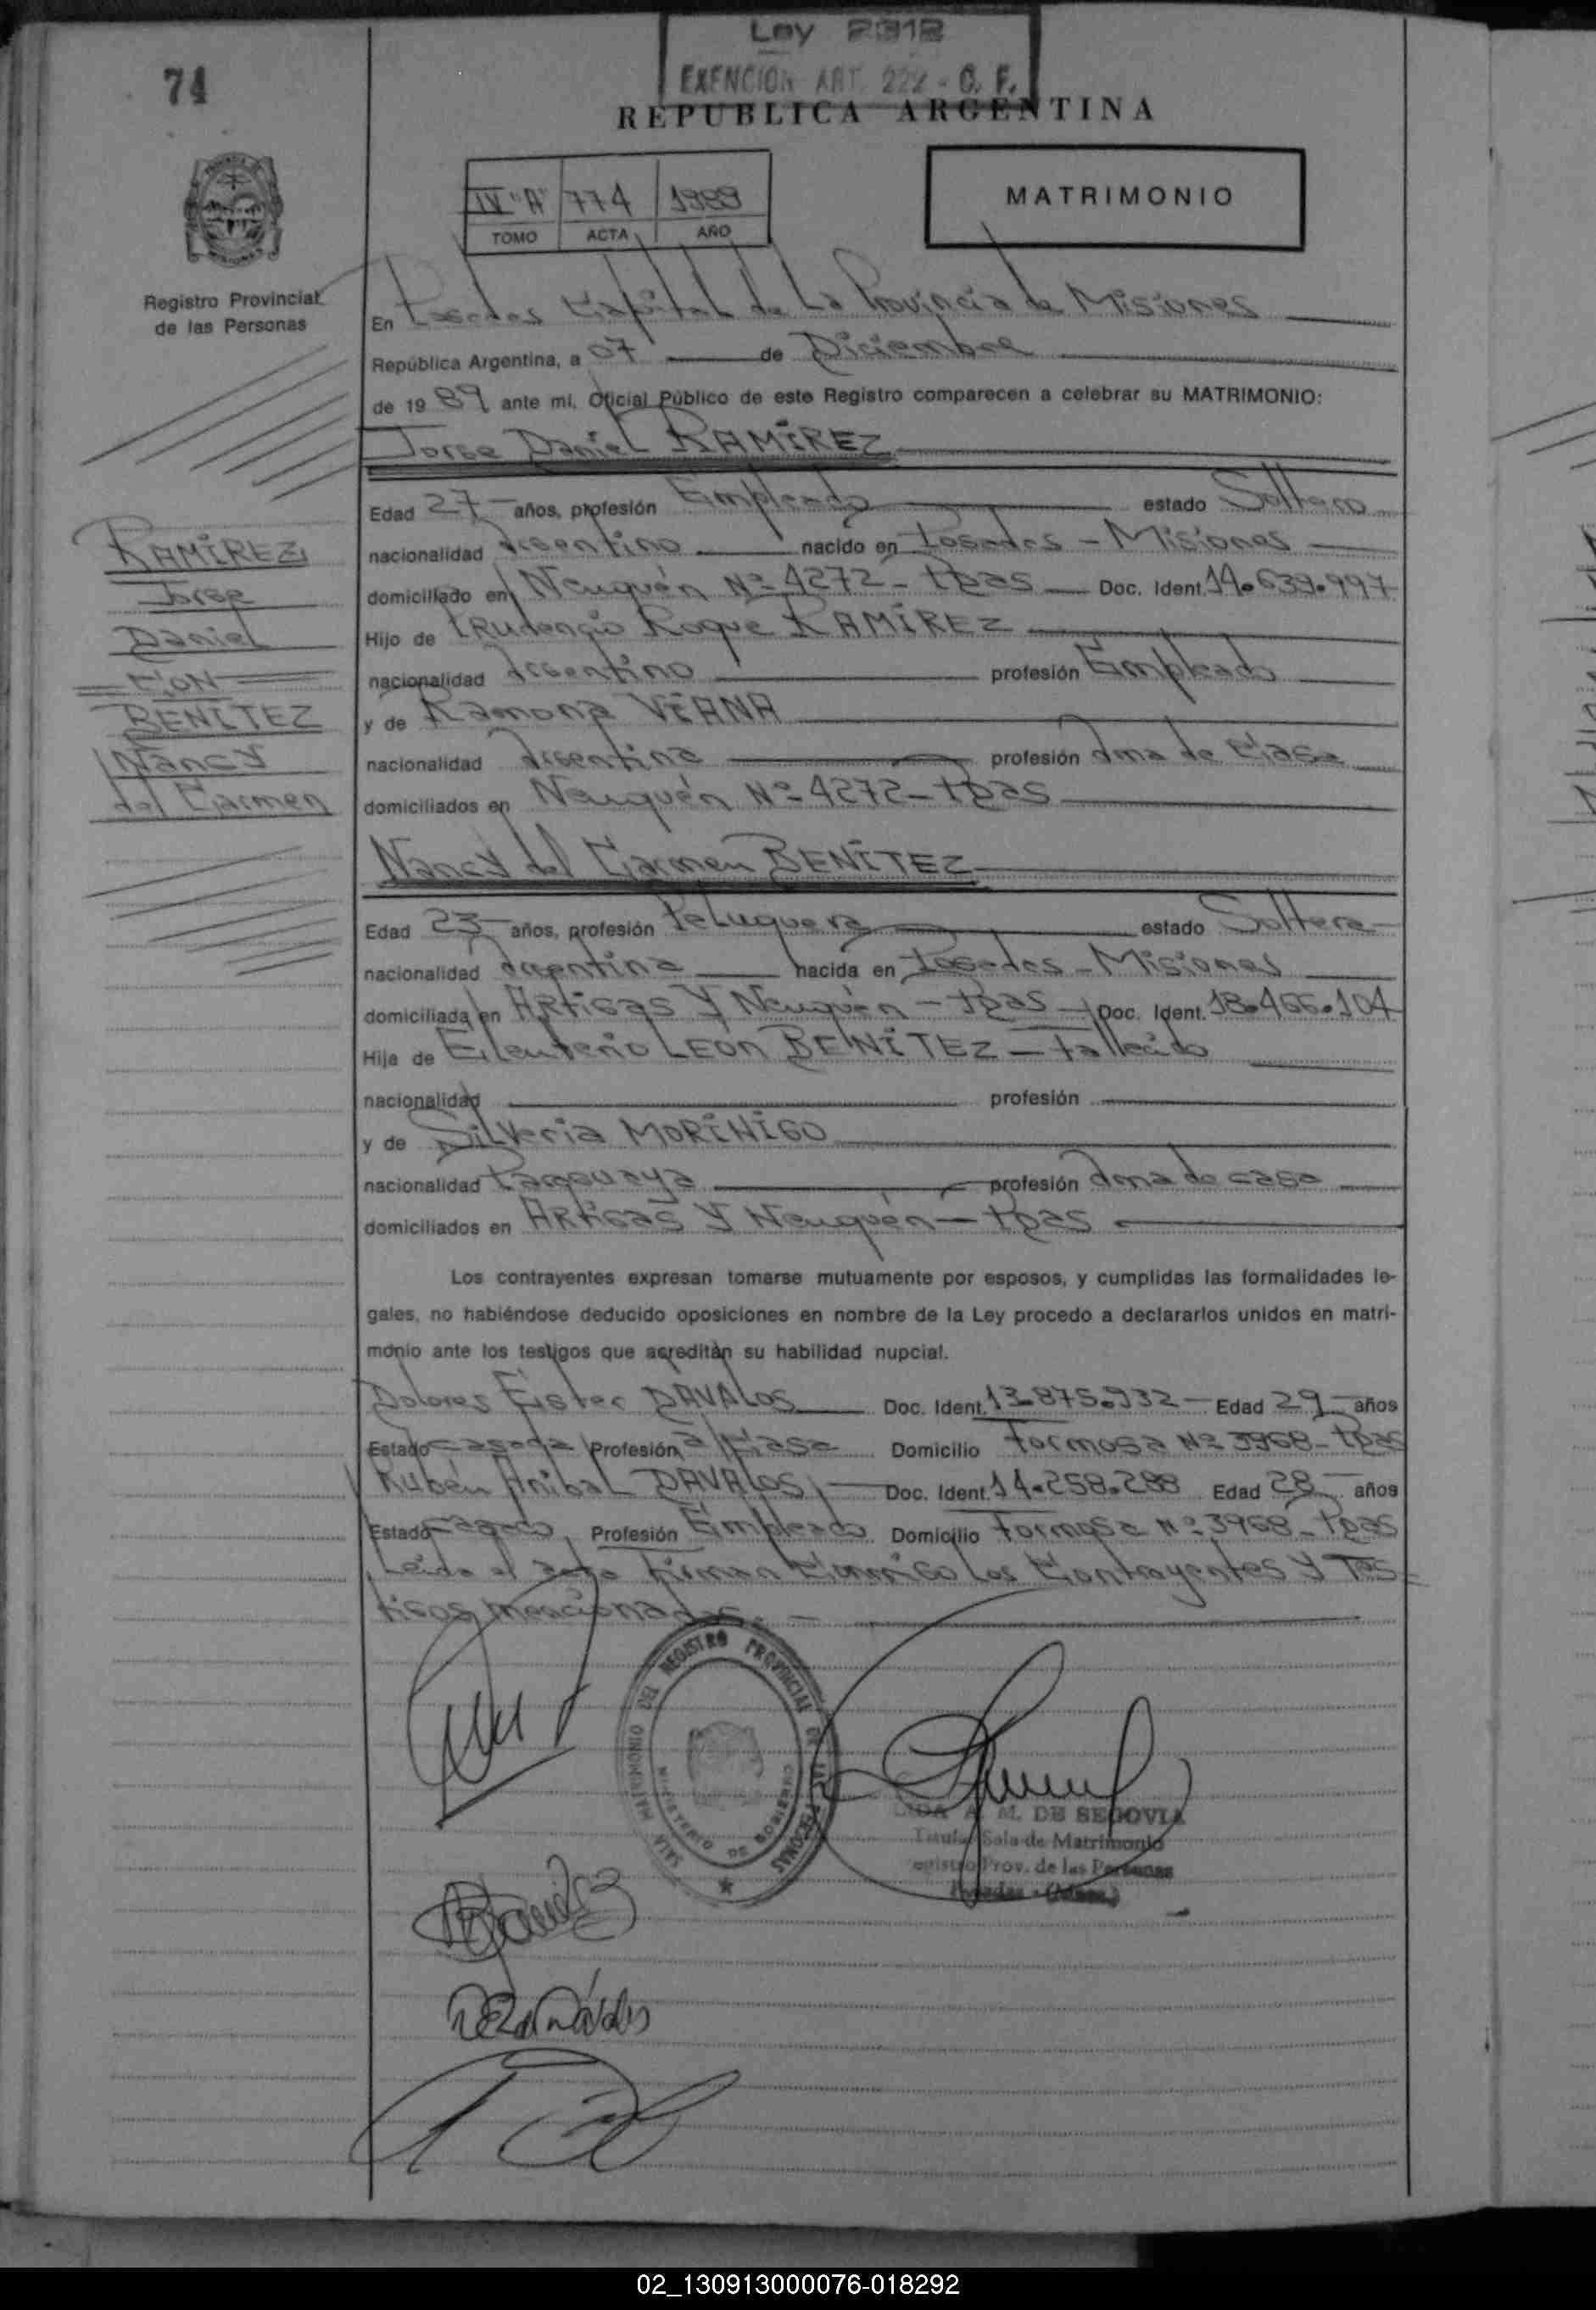 Ley 2312
EXENCION ART. 222 - C. F.
74
REPUBLICA ARGENTINA
IV "A" 774 1989
TOMO ACTA AÑO
MATRIMONIO
Registro Provincial
de las Personas
En Posadas Capital de La Provincia de Misiones
República Argentina, a 07 de Diciembre
de 19 89 ante mi, Oficial Público de este Registro comparecen a celebrar su MATRIMONIO:
Jorge Daniel RAMÍREZ
Edad 27 años, profesión Empleado estado Soltero
nacionalidad Argentino nacido en Posadas - Misiones
domiciliado en Neuquén Nº 4272 - Pdas Doc. Ident. 14.639.997
Hijo de Prudencio Roque RAMÍREZ
nacionalidad Argentino profesión Empleado
y de Ramona VIANA
nacionalidad Argentina profesión Ama de Casa
domiciliados en Neuquén Nº 4272 - Pdas
RAMÍREZ
Jorge
Daniel
CON
BENITEZ
Nancy
del Carmen
Nancy del Carmen BENÍTEZ
Edad 23 años, profesión Peluquera estado Soltera
nacionalidad Argentina nacida en Posadas - Misiones
domiciliada en Artigas Y Neuquén - Pdas Doc. Ident. 18.466.104
Hija de Eleuterio LEÓN BENÍTEZ - Fallecido
nacionalidad profesión
y de Silveria MORÍNIGO
nacionalidad Paraguaya profesión Ama de casa
domiciliados en Artigas Y Neuquén - Pdas
Los contrayentes expresan tomarse mutuamente por esposos, y cumplidas las formalidades le-
gales, no habiéndose deducido oposiciones en nombre de la Ley procedo a declararlos unidos en matri-
monio ante los testigos que acreditàn su habilidad nupcial.
Dolores Ester DÁVALOS Doc. Ident. 13.875.932 - Edad 29 años
Estado casada Profesión A/Casa Domicilio Formosa Nº 3968 - Pdas
Rubén Aníbal DÁVALOS - Doc. Ident. 14.258.288 Edad 28 años
Estado casado Profesión Empleado Domicilio Formosa Nº 3968 - Pdas
Leída el acta Firman Conmigo Los Contrayentes Y Tes-
tigos mencionados. -
SALA MATRIMONIO DEL REGISTRO PROVINCIAL DE LAS PERSONAS
MINISTERIO DE GOBIERNO
A. M. DE SEGOVIA
Titular Sala de Matrimonio
Registro Prov. de las Personas
Posadas - (Mnes.)
02_130913000076-018292